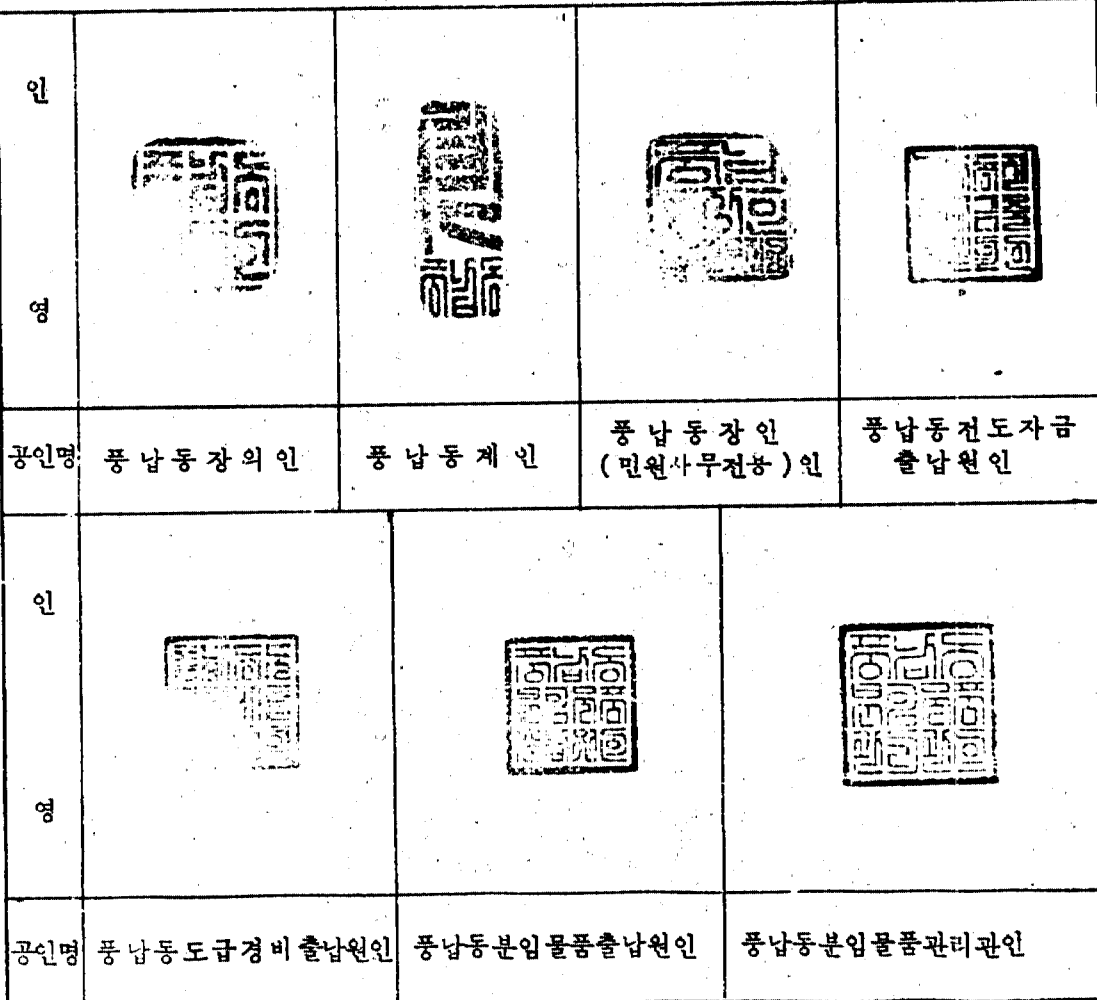 인
영
공인명 풍납동장의인 풍납동계인 풍납동장인 (민원사무전용)인 풍납동전도자금 출납원인
인
영
공인명 풍납동도급경비출납원인 풍납동분임물품출납원인 풍납동분임물품관리관인